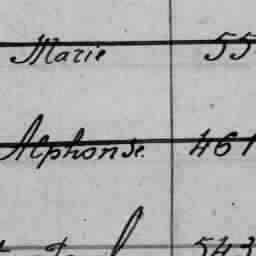 Marie 55
Alphonse. 461
543